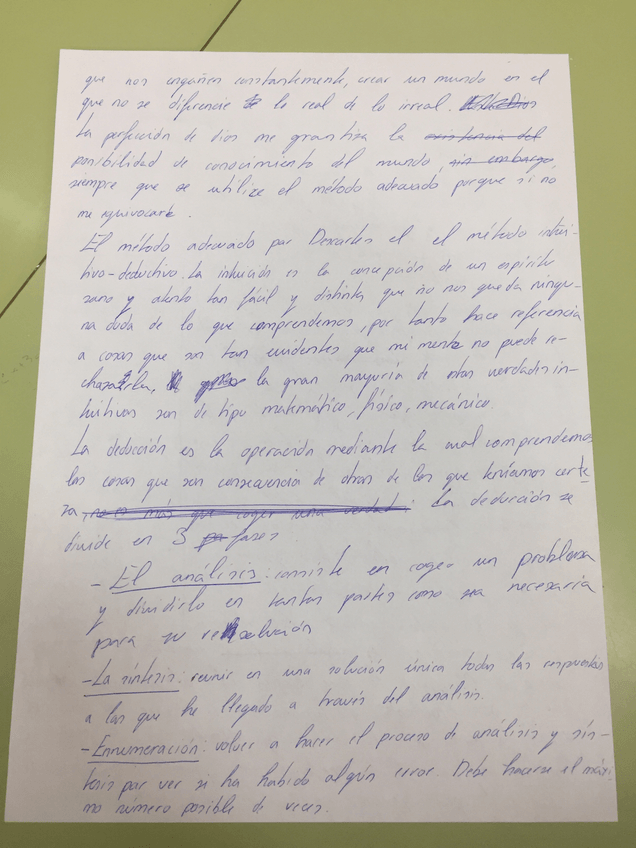 que nos engañen constantemente, crear un mundo en el
que no se diferencie lo real de lo irreal.
La perfección de dios me grantiza la existencia del
posibilidad de conocimiento del mundo, sin embargo,
siempre que se utilize el método adecuado porque si no
me equivocaré.
El método adecuado por Descartes el el método intui-
tivo-deductivo. La intuición es la concepción de un espíritu
sano y atento tan fácil y distinta que no nos queda ningu-
na duda de lo que comprendemos, por tanto hace referencia
a cosas que son tan evidentes que mi mente no puede re-
chazarla, la gran mayoría de estas verdades in-
tuitivas son de tipo matemático, físico, mecánico.
La deducción es la operación mediante la cual comprendemos
las cosas que son consecuencia de otras de las que teníamos certe
za, no es más que coger una verdad. La deducción se
divide en 3 fases.
- El análisis: consiste en coger un problema
y dividirlo en tantas partes como sea necesaria
para su resolución
- La síntesis: reunir en una solución única todas las respuestas
a las que he llegado a través del análisis.
- Ennumeración: volver a hacer el proceso de análisis y sín-
tesis por ver si ha habido algún error. Debe hacerse el máxi
mo número posible de veces.